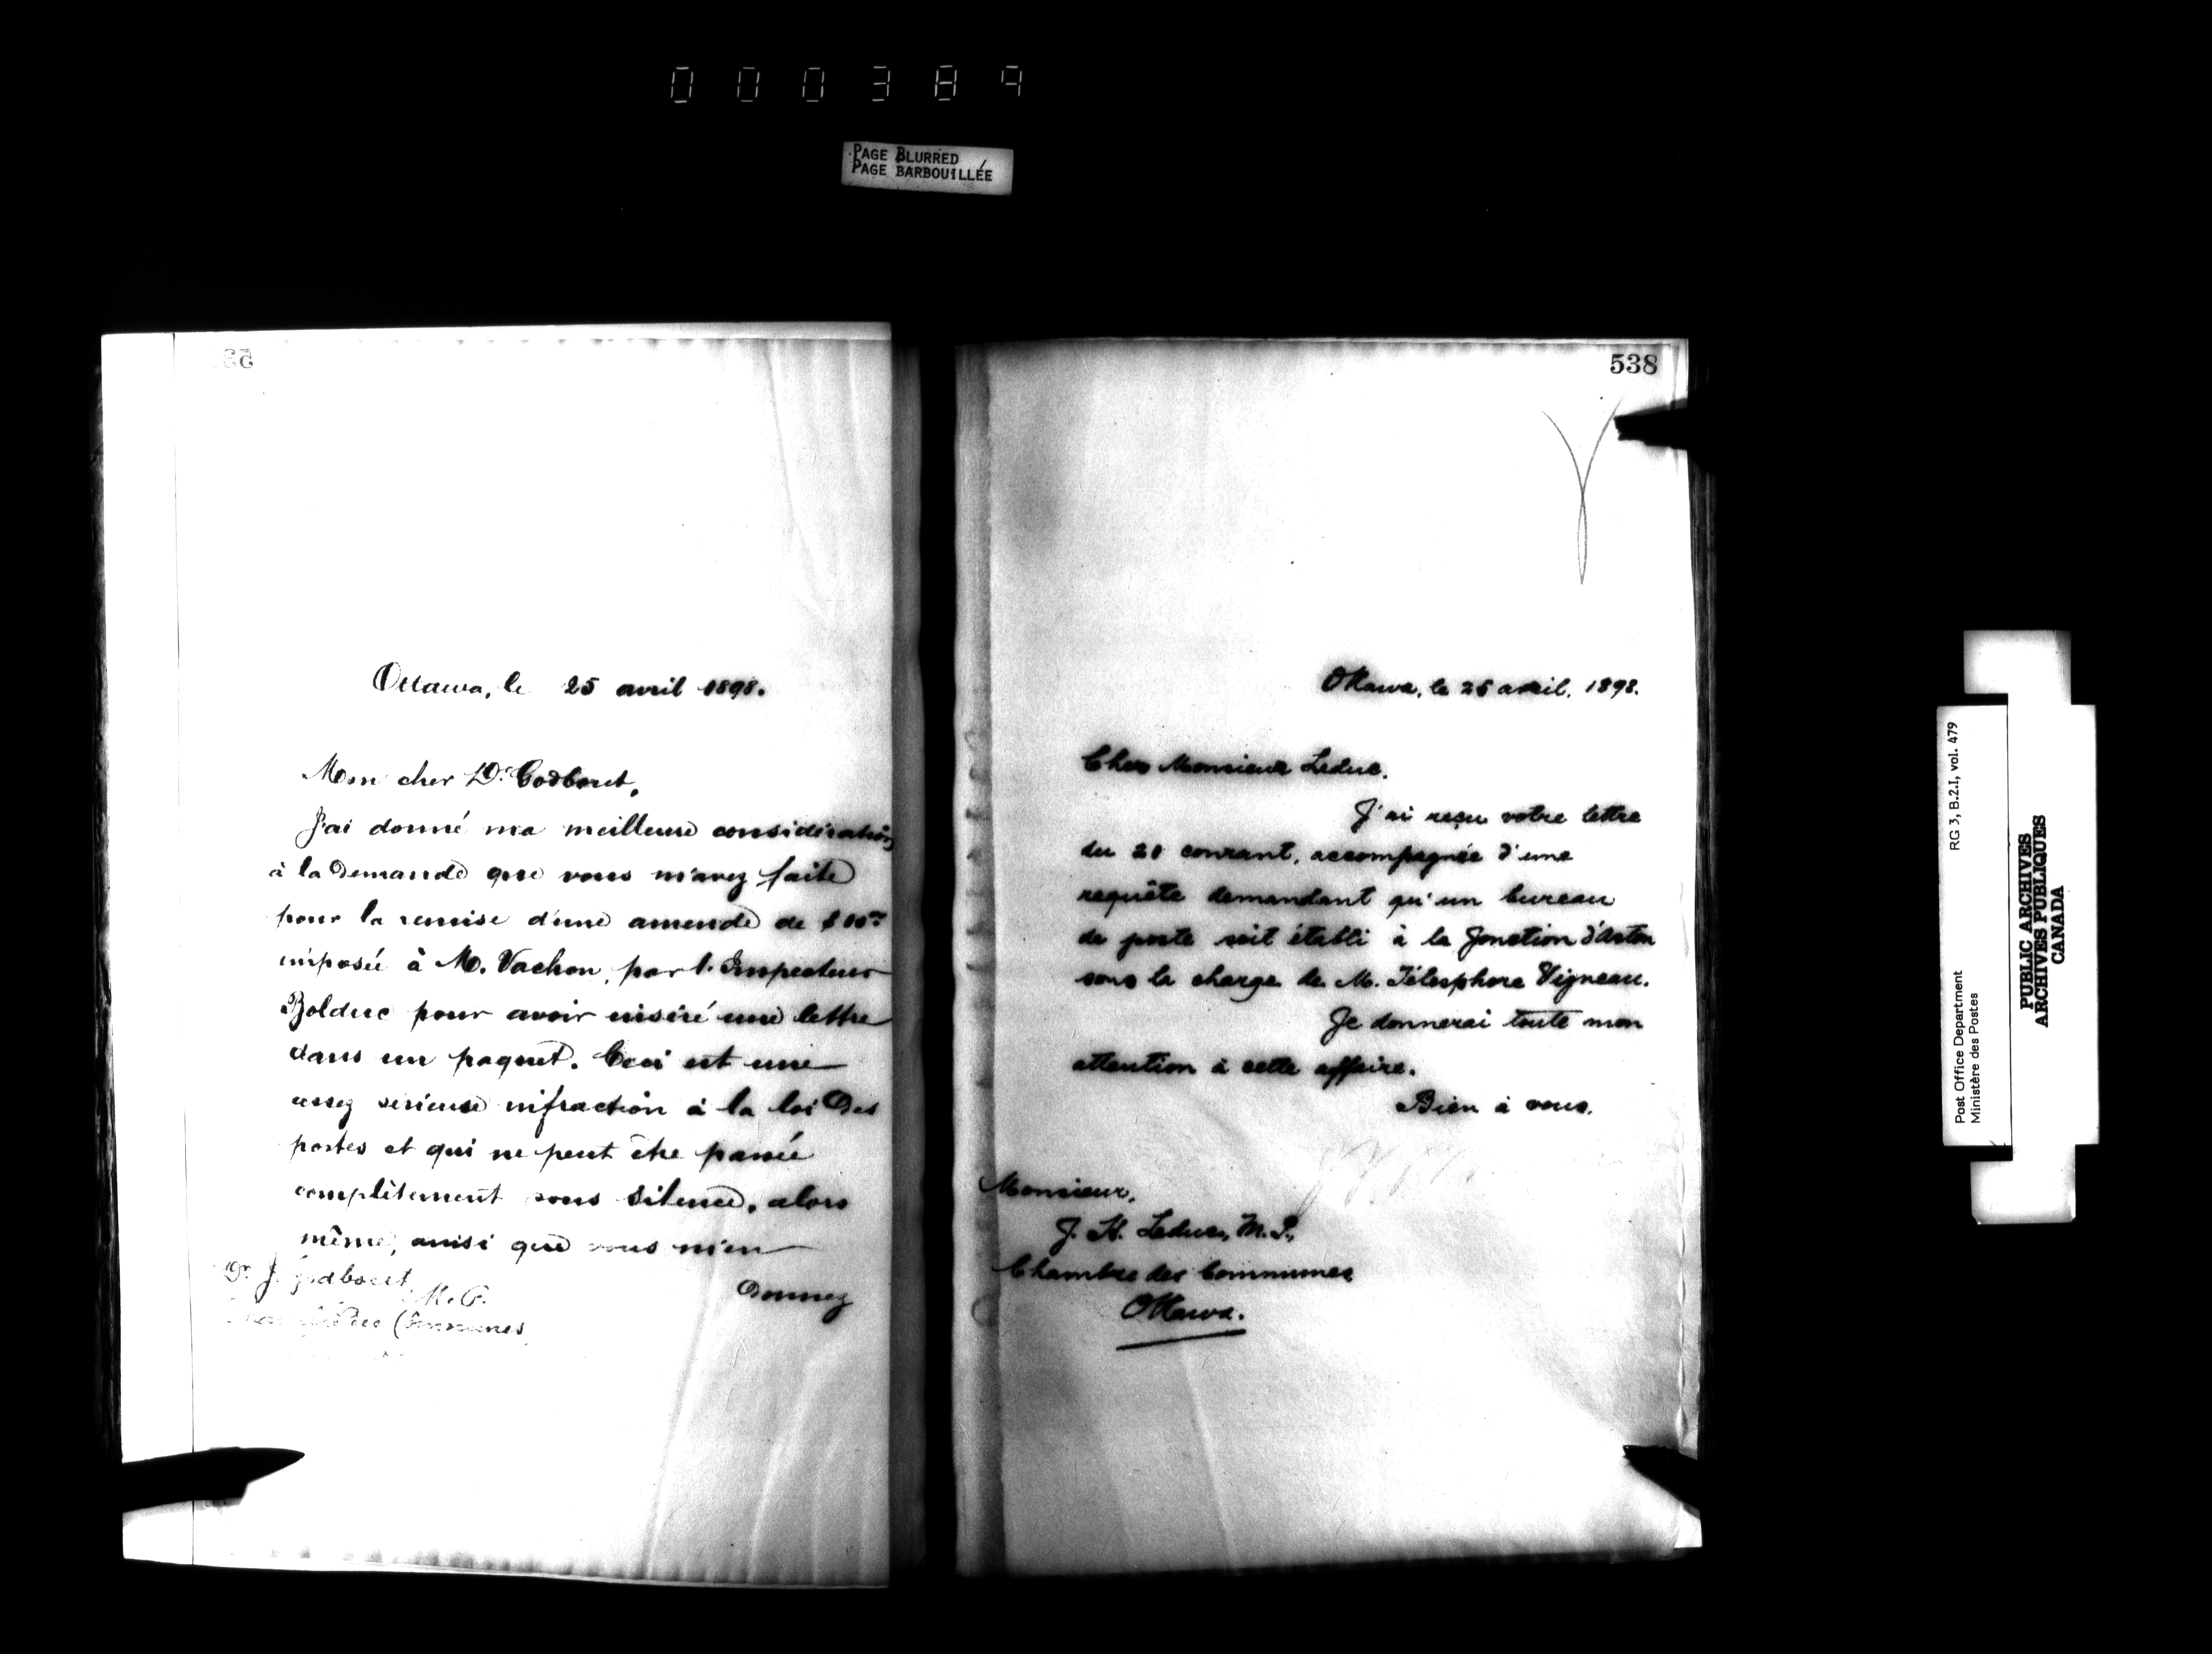 000389
PAGE BLURRED
PAGE BARBOUILLÉE
Ottawa, le 25 avril 1898.
Mon cher Dr. Godbout,
J'ai donné ma meilleure considération
à la demande que vous m'avez faite
pour la remise d'une amende de
imposée à M. Vachon, par l'Inspecteur
Bolduc pour avoir inséré une lettre
dans un paquet. Ceci est une
assez sérieuse infraction à la loi des
postes et qui ne peut être passée
complètement sous silence, alors
même, ainsi que vous m'en
donnez
Dr. J. Godbout, M.P.
Communes
538
Ottawa, le 25 avril, 1898.
Cher Monsieur Leduc,
J'ai reçu votre lettre
du 20 courant, accompagnée d'une
requête demandant qu'un bureau
de poste soit établi à la Jonction d'Aston
sous la charge de M. Télesphore Vigneau.
Je donnerai toute mon
attention à cette affaire.
Bien à vous,
Monsieur,
J. H. Leduc, M.P.,
Chambre des Communes
Ottawa.
Post Office Department
Ministère des Postes
RG 3, B.2.I, vol. 479
PUBLIC ARCHIVES
ARCHIVES PUBLIQUES
CANADA